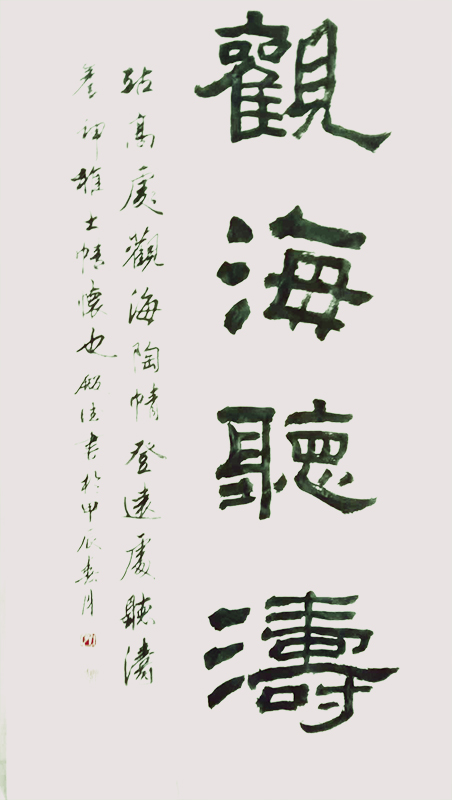 觀海聽濤
站高處觀海陶情登遠處聽濤
雅士情懷也 書於甲辰春月